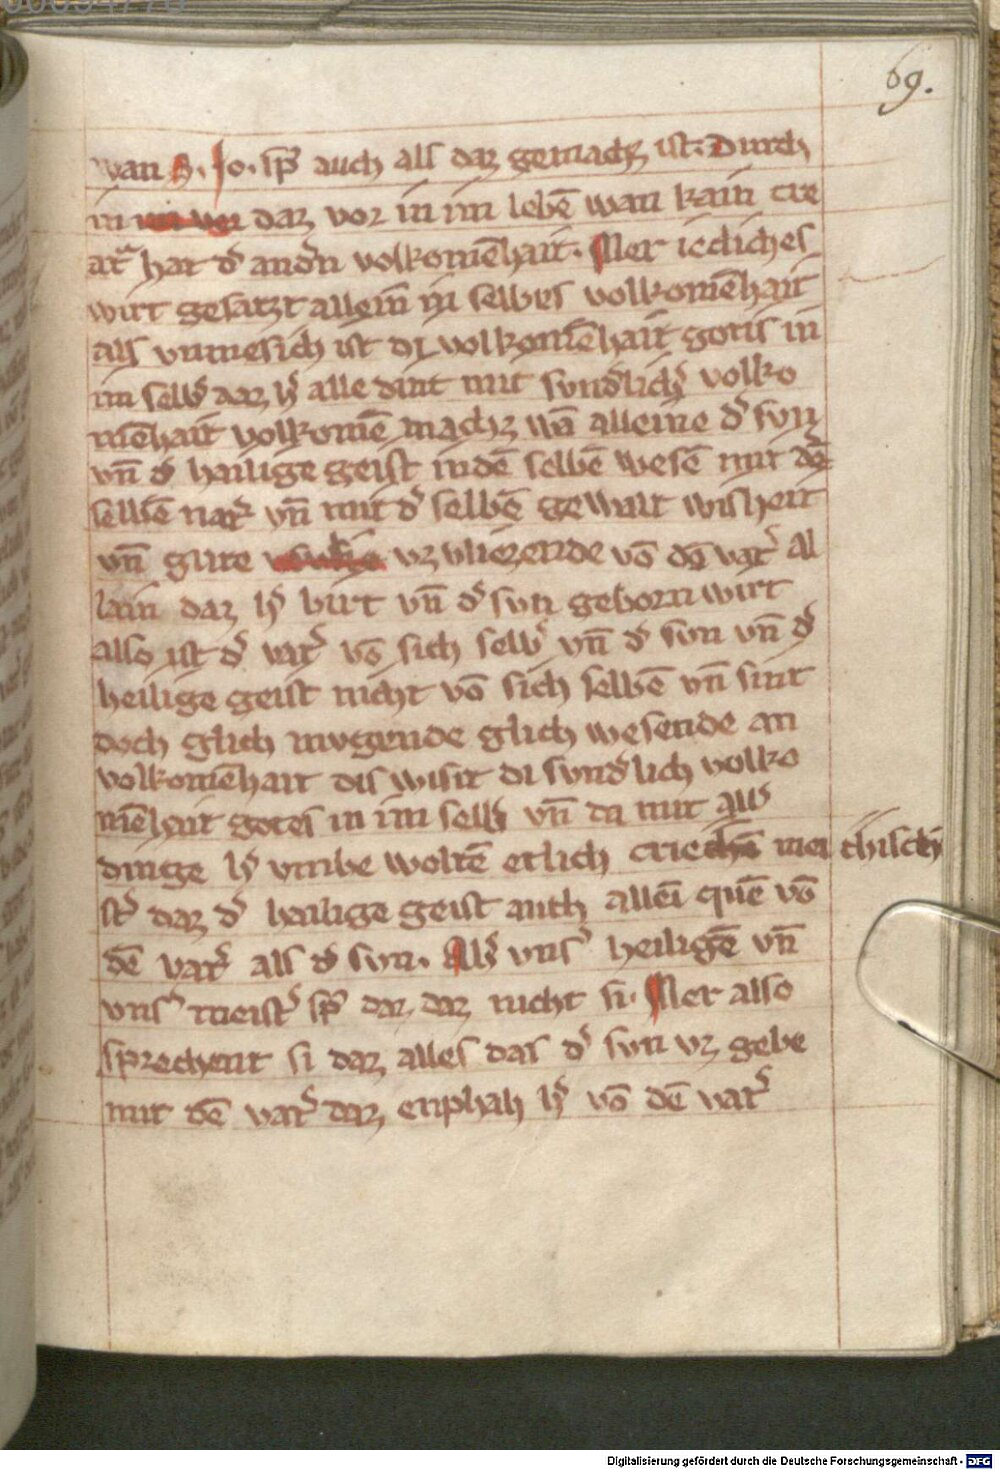 69.
wan S. Jo. sp̄ auch als daz gemachz ist. Durch
in daz vor in im lebē wan kain cre
atᵃ hat dˀ andˀn volkomēhait. Mer iecliches
wirt gesatzt allein in selbes volkomēhait
als vnmesich ist di volkomēhait gotis in
im selbˀ daz hˀ alle dint mit svndˀlichˀ volko
mēhait volkomē machz wā alleine dˀ svn
vn̄ dˀ heilige geist in dē selbē wesē mit dē
selbē natˀ vn̄ mit dˀ selbē gewalt wisheit
vn̄ gute vz vliezende vō dē vatˀ al
lain daz hˀ birt vn̄ dˀ svn geborn wirt
also ist dˀ vatˀ vō sich selbˀ vn̄ dˀ svn vn̄ dˀ
heilige geist nicht vō sich selbē vn̄ sint
doch glich mvgende glich wesende an
volkomēhait dis wisit di svndˀlich volko
mēhait gotes in im selbˀ vn̄ da mit allˀ
dinge hˀ vmbe woltē etlich criechischē mei
stˀ daz dˀ heilige geist auch allēi quē vō
dē vatˀ als dˀ svn. Abˀ vnsˀ heiligē vn̄
vnsˀ meistˀ sp̄ daz, daz nicht si. Mer also
sprechent si daz alles das dˀ svn vz gebe
mit dē vatˀ daz enphah hˀ vō dē vatˀ
Digitalisierung gefördert durch die Deutsche Forschungsgemeinschaft - DFG